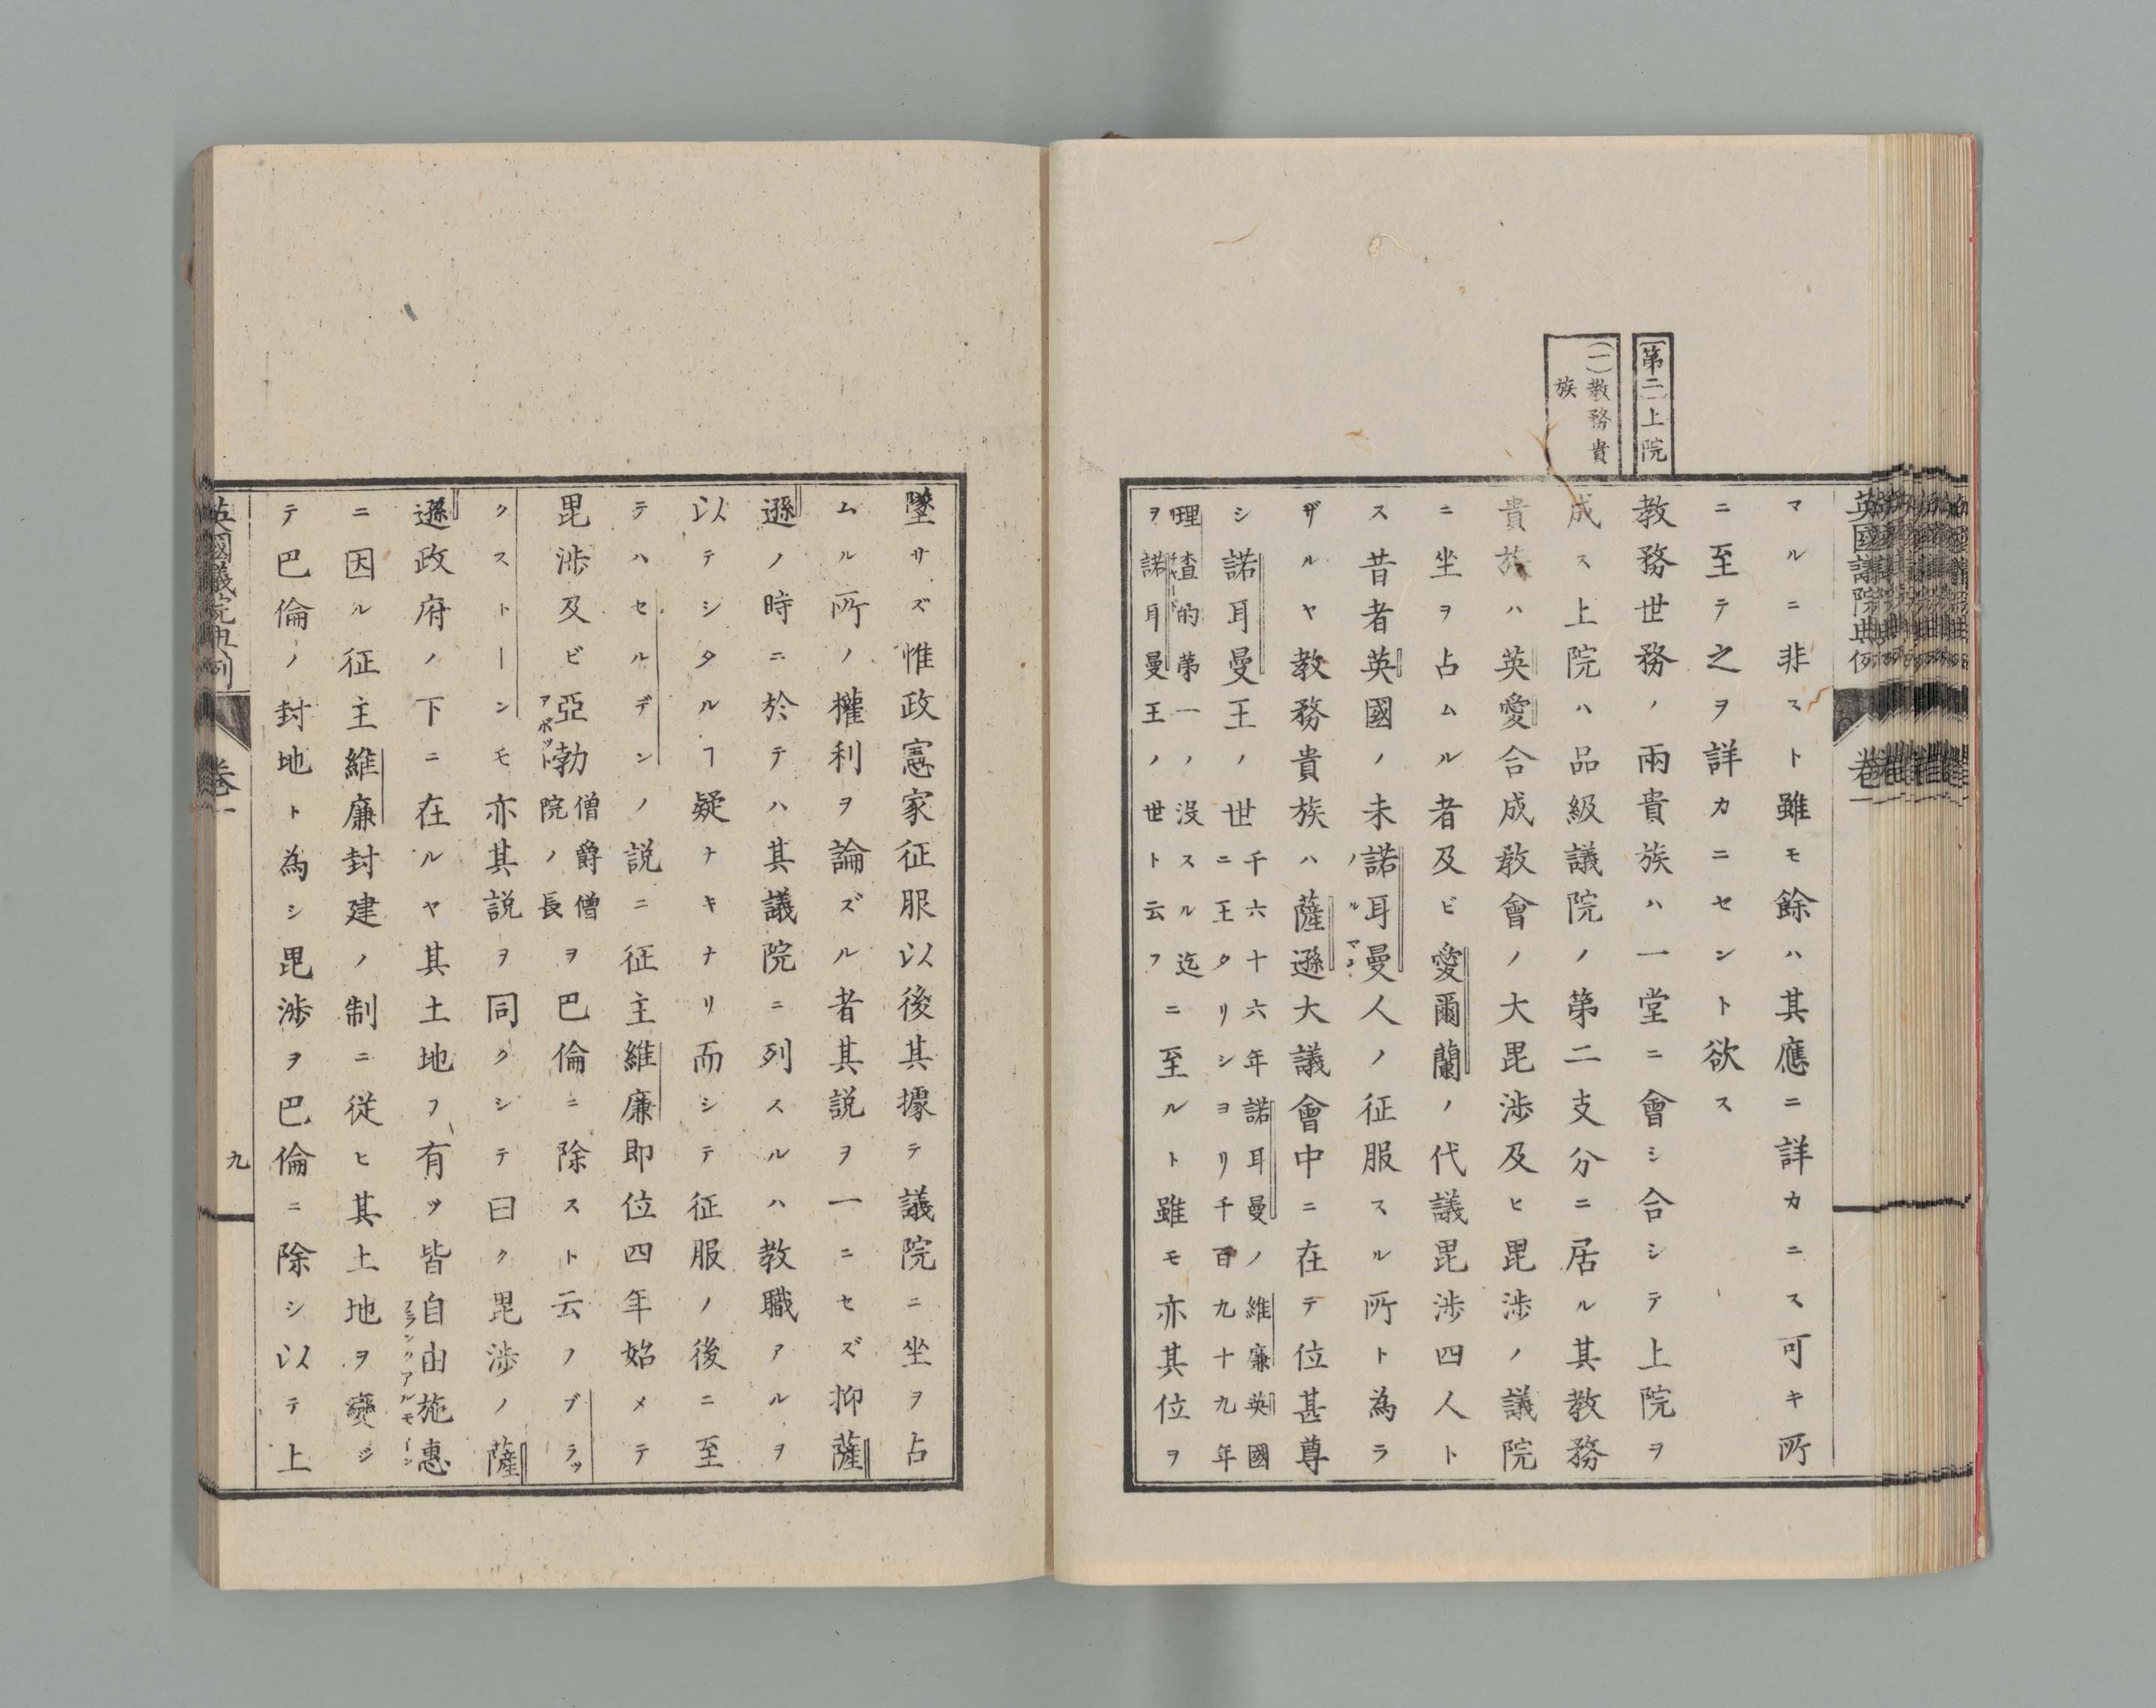 英國議院典例
卷一
第二上院
(一)教務貴
族
マルニ非スト雖モ餘ハ其應ニ詳カニス可キ所
ニ至テ之ヲ詳カニセント欲ス
教務世務ノ兩貴族ハ一堂ニ會シ合シテ上院ヲ
成ス上院ハ品級議院ノ第二支分ニ居ル其教務
貴族ハ英愛合成教會ノ大毘渉及ヒ毘渉ノ議院
ニ坐ヲ占ムル者及ビ愛爾蘭ノ代議毘渉四人ト
ス昔者英國ノ未諾耳曼人ノ征服スル所ト為ラ
ノルマン
ザルヤ教務貴族ハ薩遜大議會中ニ在テ位甚尊
シ諾耳曼王ノ世
千六十六年諾耳曼ノ維廉英國
ニ王タリシヨリ千百九十九年
理査的第一ノ没スル迄
リチャード
ヲ諾耳曼王ノ世ト云フ
ニ至ルト雖モ亦其位ヲ
墜サズ惟政憲家征服以後其據テ議院ニ坐ヲ占
ムル所ノ權利ヲ論ズル者其説ヲ一ニセズ抑薩
遜ノ時ニ於テハ其議院ニ列スルハ教職アルヲ
以テシタルヿ疑ナキナリ而シテ征服ノ後ニ至
テハセルデンノ説ニ征主維廉即位四年始メテ
毘渉及ビ亞勃
アボット
僧爵僧
院ノ長
ヲ巴倫ニ除スト云フブラッ
クストーンモ亦其説ヲ同クシテ曰ク毘渉ノ薩
遜政府ノ下ニ在ルヤ其土地ヲ有ツ皆自由施惠
フランクアルモーン
ニ因ル征主維廉封建ノ制ニ従ヒ其上地ヲ變シ
テ巴倫ノ封地ト為シ毘渉ヲ巴倫ニ除シ以テ上
英國議院典例
卷一
九